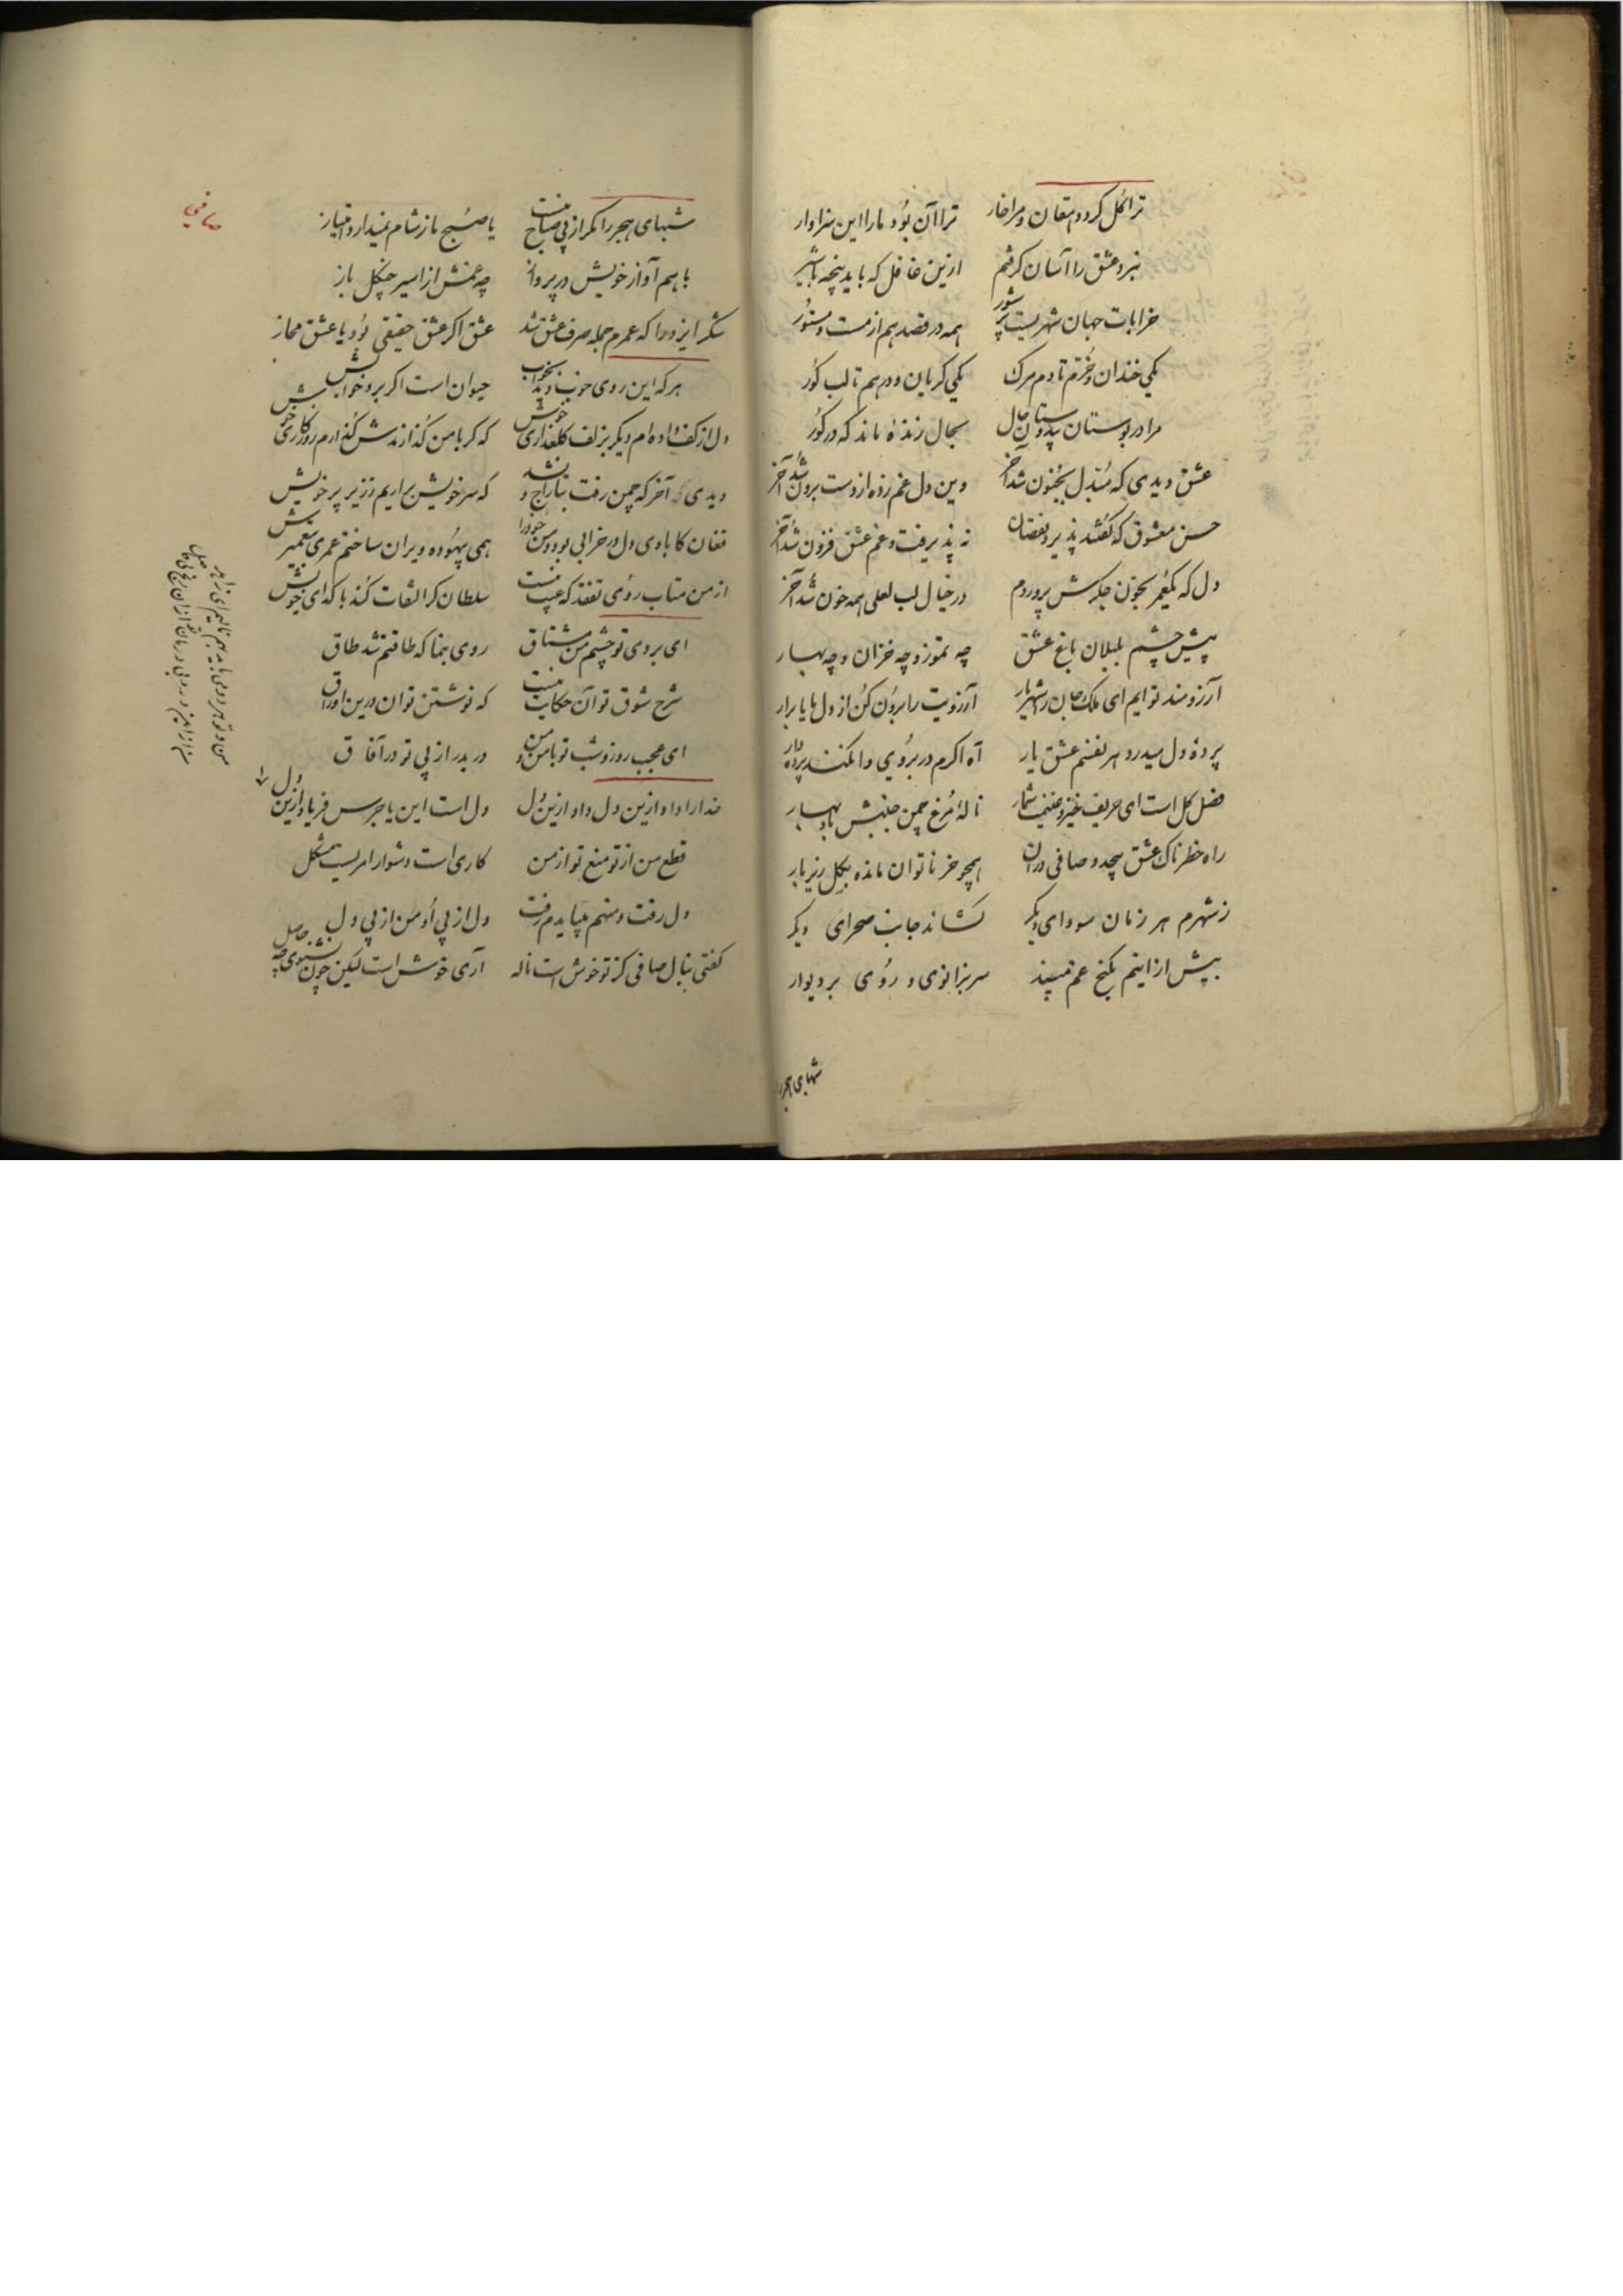 ترا گل کرد دهقان و مرا خار ترا آن بود و ما را این سزاوار
نبرد عشق را آسان گرفتم ازین غافل که باید پنجه با شیر
خرابات جهان شهریست پر شور همه در قصد هم از مست و مستور
یکی خندان و خرم تا دم مرگ یکی گریان و درهم تا لب گور
مرا در بوستان بی دوستان حال بحال زنده ماند که در گور
عشق دیدی که مبدل بجنون شد آخر وین دل غم زده از دست برون شد آخر
حسن معشوق که گفتند پذیرد نقصان نه پذیرفت و غم عشق فزون شد آخر
دل که یکعمر بخون جگرش پروردم در خیال لب لعلی همه خون شد آخر
پیش چشم بلبلان باغ عشق چه تموز و چه خزان و چه بهار
آرزومند توایم ای ملک جان را شهریار آرزویت را برون کن از دل ما یا برار
پردهٔ دل میدرد هر نفسم عشق یار آه اگرم در بروی وا نکند پرده دار
فصل گل است ای حریف خیز و غنیمت شمار نالهٔ مرغ چمن جنبش باد بهار
راه خطرناک عشق صافی در آن همچو خر ناتوان مانده بگل زیر بار
ز شهرم هر زمان سودای دیگر کشاند جانب صحرای دیگر
بیش ازاینم بکنج غم مپسند سر بزانوی و روی بر دیوار
شبهای هجر
صافی
شبهای هجر را مگر از پی صباح نیست یا صبح ما ز شام نمیدارد امتیاز
با هم آواز خویش در پرواز چه غمش از اسیر چنگل باز
شکر ایزد را که عمرم جمله صرف عشق شد عشق اگر عشق حقیقی بود یا عشق مجاز
هر که این روی خوب دید بخواب حیوان است اگر برد خوابش
دل از کف داده ام دیگر بزلف گلعذاری خوش که گر با من گذارندش گذارم روزگاری خوش
دیدی که آخر که چمن رفت بتاراج و نشد که سر خویش براریم ز زیر پر خویش
فغان کابادی دل در خرابی بود و من خود را همی بیهوده ویران ساختم عمری بتعمیرش
از من متاب روی تفقد که عیب نیست سلطان گر التفات کند با گدای خویش
ای بروی تو چشم من مشتاق روی بنما که طاقتم شد طاق
شرح شوق تو آن حکایت نیست که نوشتن توان درین اوراق
ای عجب روز و شب تو با من و من در بدر از پی تو در آفاق
خدا را داد ازین دل داد ازین دل دل است این یا جرس فریاد ازین دل
قطع من از تو منع تو از من کاری است دشوار امریست مشکل
دل رفت و منهم بباید م رفت دل از پی او من از پی دل
گفتی بنال صافی کز تو خوش است ناله آری خوش است لیکن چون نشنوی چه حاصل
من و تو هر دو می باید بهم نالیم ای زاهد
من از این درد بی درمان تو از آن رنج